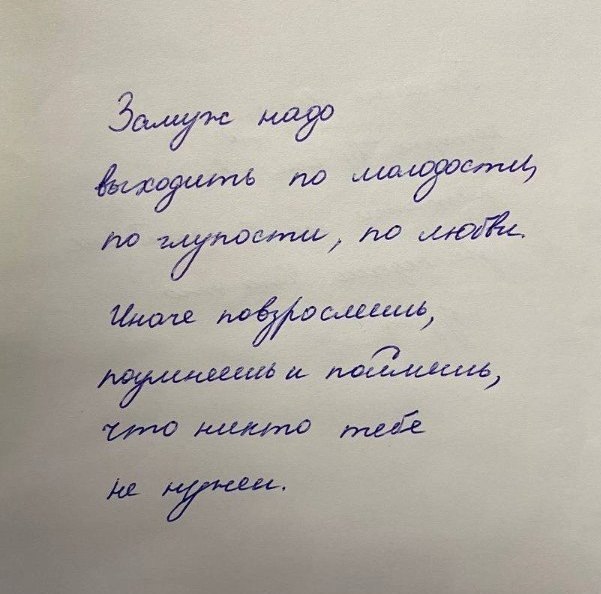 Замуж надо
выходить по молодости,
по глупости, по любви.
Иначе повзрослеешь,
поумнеешь и поймешь,
что никто тебе
не нужен.